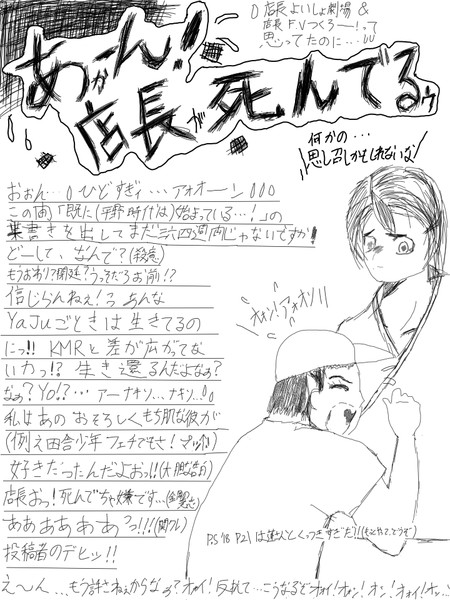 店長よいしょ劇場&
店長F.Vつくろーって
思ってたのに…
あかん!
店長が死んでるゥ
何かの…
思し召しかもしれないな
おぉん…ひどすぎィ…アォオーン
この面「既に(平野時代は)始まっている…!」の
葉書きを出してまだ三、四週間じゃないですか!
どーして、なんで?(殺意)
もうおわり?閉廷?うっそだろお前!?
信じらんねぇ!あんな
YaJuごときは生きてるの
にっ!! KMRと差が広がってな
いカっ!? 生き還るんだよなぁ?
なぁ? Yo!?…アーナキソ…ナキソ…
私はあのおそろしくもち肌な彼が
(例え田舎少年フェチでもさ!マッカ)
好きだったんだよおっ!!(大胆な告白)
店長おっ!死んでちゃ嫌です…
ああああああっ!!!(関フレ)
投稿者のデヒッ!!
え〜ん…もう許さねぇからなぁ?オォイ!…こうなるとオォイ!オォン!オン!オォイ!
オォン!アォオン!!
P.S 18 P21は
くっつきすぎだろ!